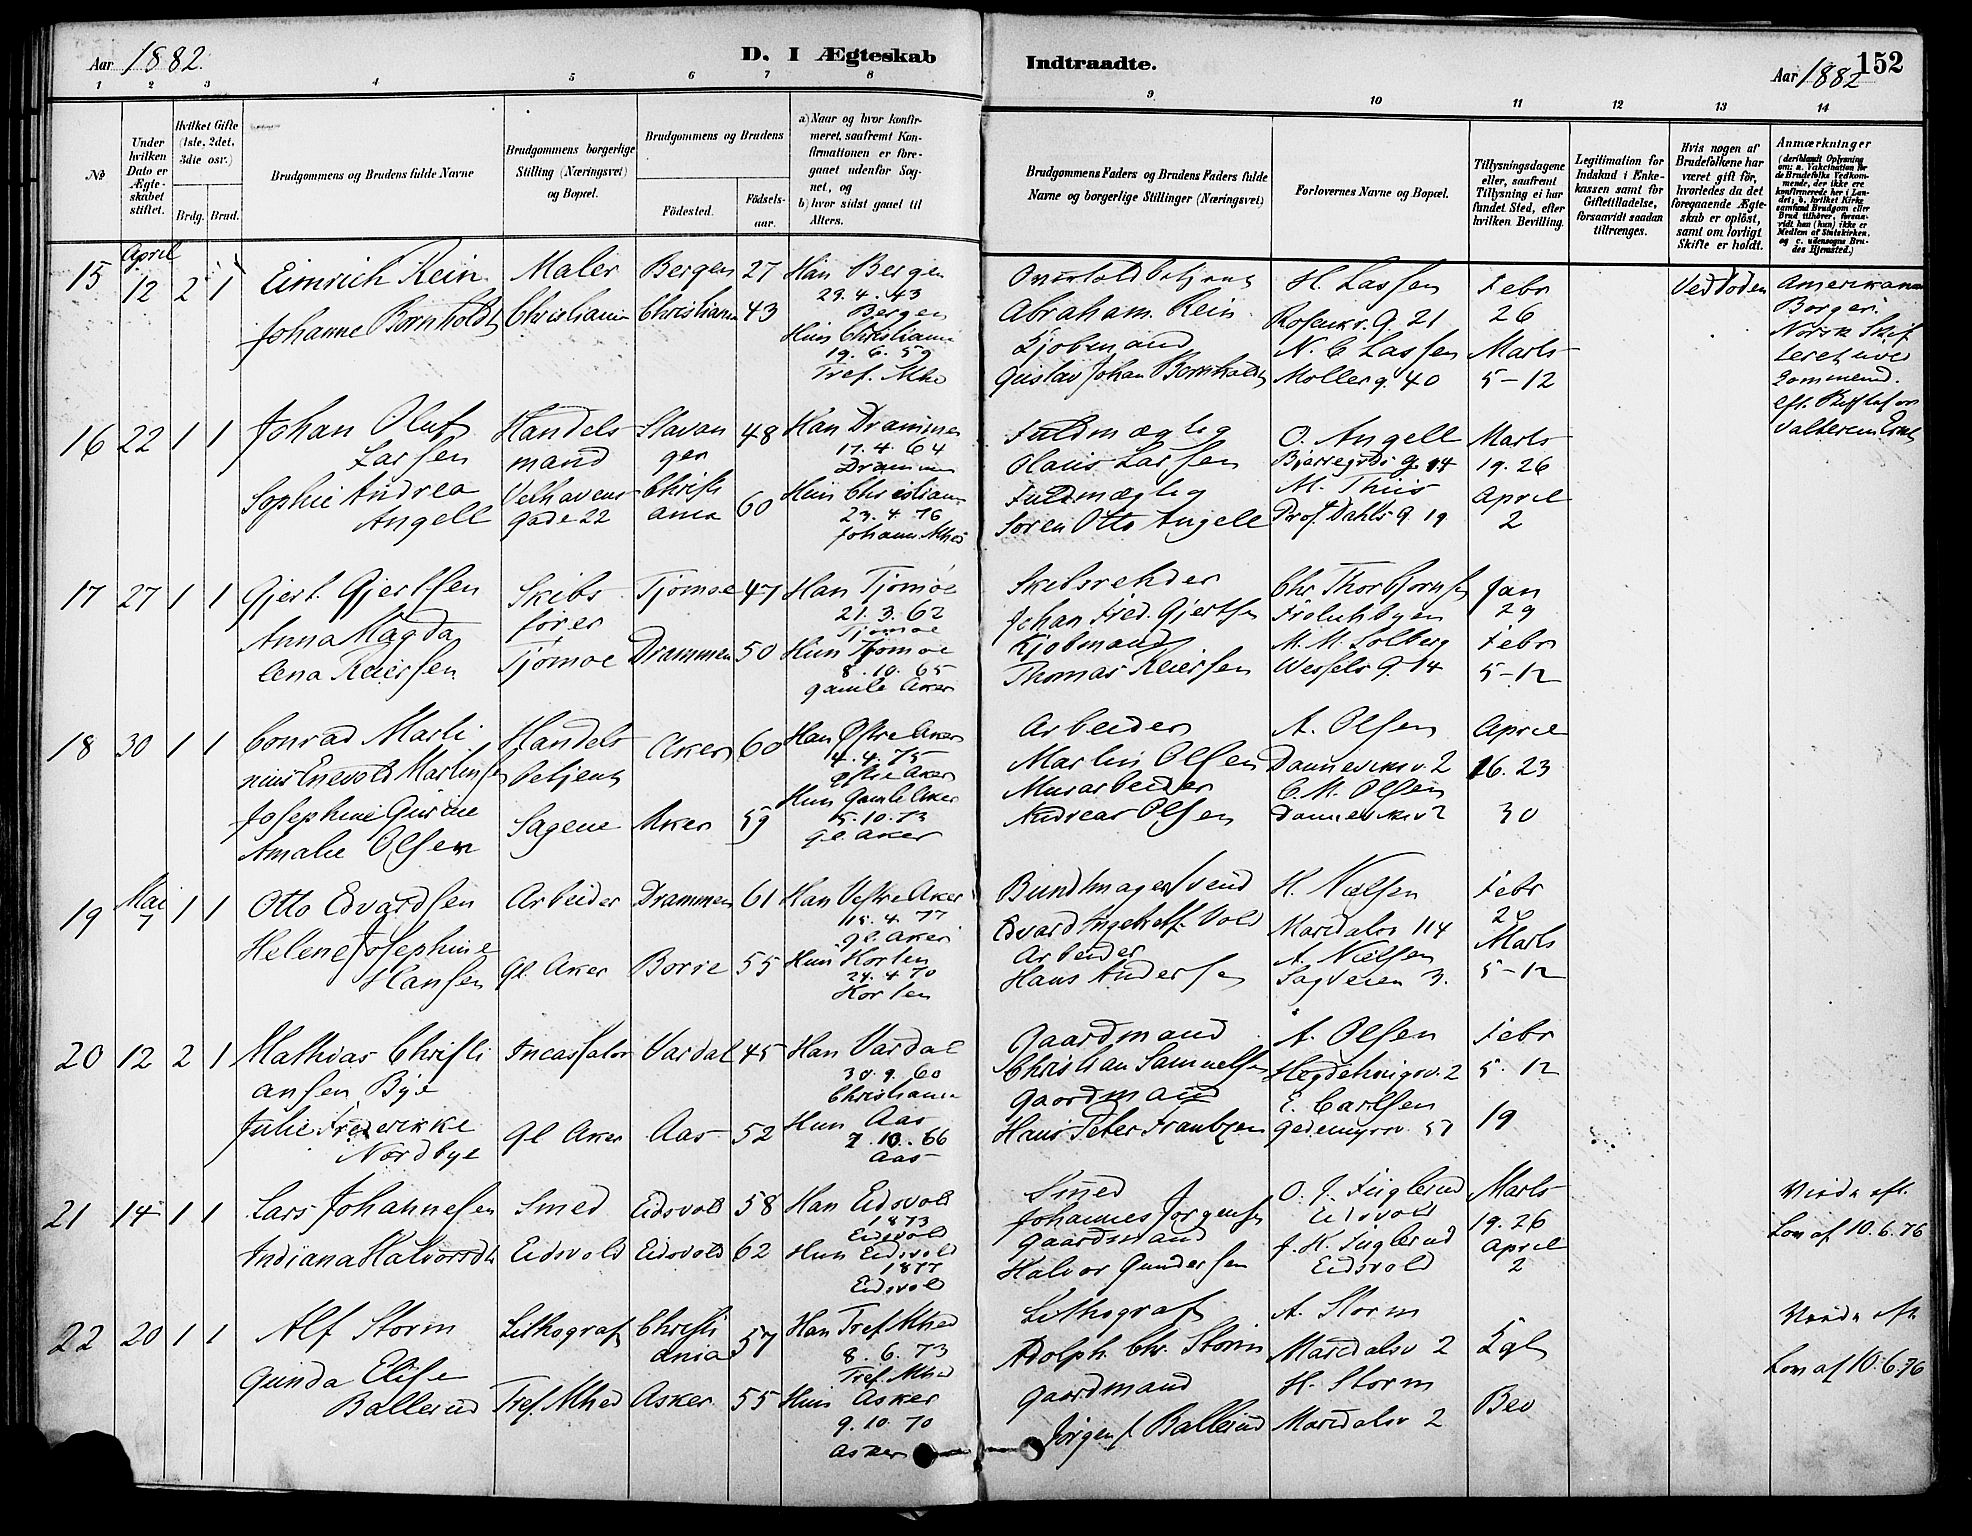 Aar 1882.
D. I Ægteskab Indtraadte.
Aar 1882 152
1 2 3 4 5 6 7 8 9 10 11 12 13 14
No
Under hvilken Dato er Ægteskabet stiftet.
Hvilket Gifte (1ste, 2det, 3die osv.)
Brdg. Brud.
Brudgommens og Brudens fulde Navne
Brudgommens borgerlige Stilling (Næringsvei) og Bopæl.
Brudgommens og Brudens
Födested. Födsels-aar.
a) Naar og hvor konfirmeret, saafremt Konfirmationen er foregaaet udenfor Sognet, og
b) hvor sidst gaaet til Alters.
Brudgommens Faders og Brudens Faders fulde Navne og borgerlige Stillinger (Næringsvei)
Forlovernes Navne og Bopæl.
Tillysningsdagene eller, saafremt Tillysning ei har fundet Sted, efter hvilken Bevilling.
Legitimation for Indskud i Enkekassen samt for Giftetilladelse, forsaavidt saadan tiltrænges.
Hvis nogen af Brudefolkene har været gift för, hvorledes da det foregaaende Ægteskab er oplöst, samt om lovligt Skifte er holdt.
Anmærkninger
15 April 12 2 1
Eimrich Rein Maler Bergen 27 Han Bergen
29. 4. 43
Bergen
Johanne Bornholdt Christiania Christiania 43 Hun Christiania
19. 6. 59
Tref. Mhe
Abraham Rein
Kjøbmand
Gustav Johan Bornholdt
H. Lassen
Rosenkr. g. 21
N. C Lassen
Møllerg. 40
Febr
26
Marts
5-12
Ved Døden
Amerikansk
Borger.
Norsk
16 22 1 1
Johan Oluf Larsen
Handelsmand
Stavanger 48
Han Drammen
17. 4. 64
Drammen
Sophie Andrea Angell
Velhavens Gade 22
Christiania 60
Hun Christiania
23. 4. 76
Johann. Mhed
Fuldmægtig
Olaus Larsen
Fuldmægtig
Søren Otto Angell
O. Angell
Bjerregrds g. 14
M. Thiis
Prof. Dahls g. 19
Marts
19. 26
April
2
17 27 1 1
Gjert Gjertsen
Skibsfører
Tjømoe 47
Han Tjømøe
21. 3. 62
Tjømøe
Anna Magdalena Reiersen
Tjømoe
Drammen 50
Hun Tjømøe
8. 10. 65
gamle Aker
Skibsreheder
Johan Fred. Gjertsen
Kjøbmand
Thomas Reiersen
Chr. Thorbjørnsen
M. M. Solberg
Wessels g. 14
Jan
29
Febr
5-12
18 30 1 1
Conrad Martinius Enevold Martinsen
Handelsbetjent
Aker 60
Han Østre Aker
4. 4. 75
Østre Aker
Josephine Gurine Amalie Olsen
Sagene
Aker 59
Hun Gamle Aker
5. 10. 73
Gl. Aker
Arbeider
Martin Olsen
Murarbeider
Andreas Olsen
A. Olsen
Dannevirksv. 2
C. M. Olsen
Dannevirksv 2
April
16. 23
30
19 Mai 7 1 1
Otto Edvardsen
Arbeider
Drammen 61
Han Vestre Aker
15. 4. 77
Gl. Aker
Helene Josephine Hansen
Gl. Aker
Borre 55
Hun Horten
24. 4 70
Horten
Bundtmagersvend
Arbeider
Hans Andersen
H. Nielsen
Maridalsv 114
A. Nielsen
Sagveien 3.
Febr
Marts
5-12
20 12 2 1
Mathias Christiansen Bye
Incassator
Vardal 45
Han Vardal
30. 9. 60
Christiania
Julie Frederikke Nordbye
Gl Aker
Aas 52
Hun Aas
7. 10. 66
Aas
Gaardmand
Christian Samuelsen
Gaardmand
Hans Peter Frantzen
A. Olsen
Hegdehaugsv. 2
E. Carlsen
Gedemyrsv. 57
Febr
5. 12
19
21 14 1 1
Lars Johannesen
Smed
Eidsvold 58
Han Eidsvold
1873
Eidsvold
Indiana Halvorsdtr
Eidsvold
Eidsvold 62
Hun Eidsvold
1877
Eidsvold
Smed
Johannes Jørgensen
Gaardmand
Halvor Gundersen
O. J. Fuglerud
Eidsvold
J. H. Fuglerud
Eidsvold
Marts
19. 26
April
2
Viede eft.
Lov af 10. 6. 76
22 20 1 1
Alf Storm
Lithograf
Christiania 57
Han Tref. Mhed
8. 6. 73
Tref. Mhed
Gunda Elise Ballerud
Tref. Mhed
Asker 55
Hun Asker
9. 10. 70
Asker
Lithograf
Adolph Chr. Storm
Gaardmand
Jørgen J Ballerud
A. Storm
Maridalsv 2
H. Storm
Maridalsv 2
Kgl
Bev
Viede eft
Lov af 10. 6. 76